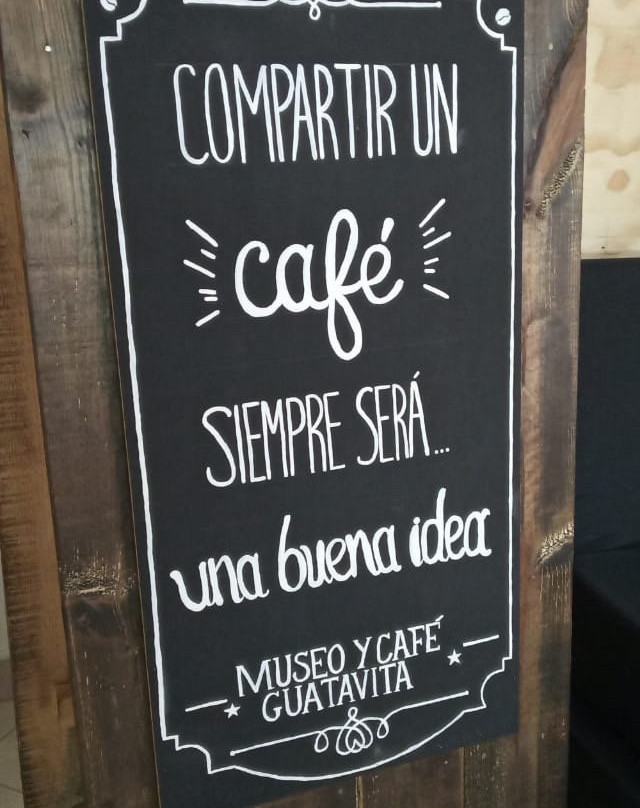 COMPARTIR UN
café
SIEMPRE SERÁ...
una buena idea
MUSEO Y CAFÉ
GUATAVITA